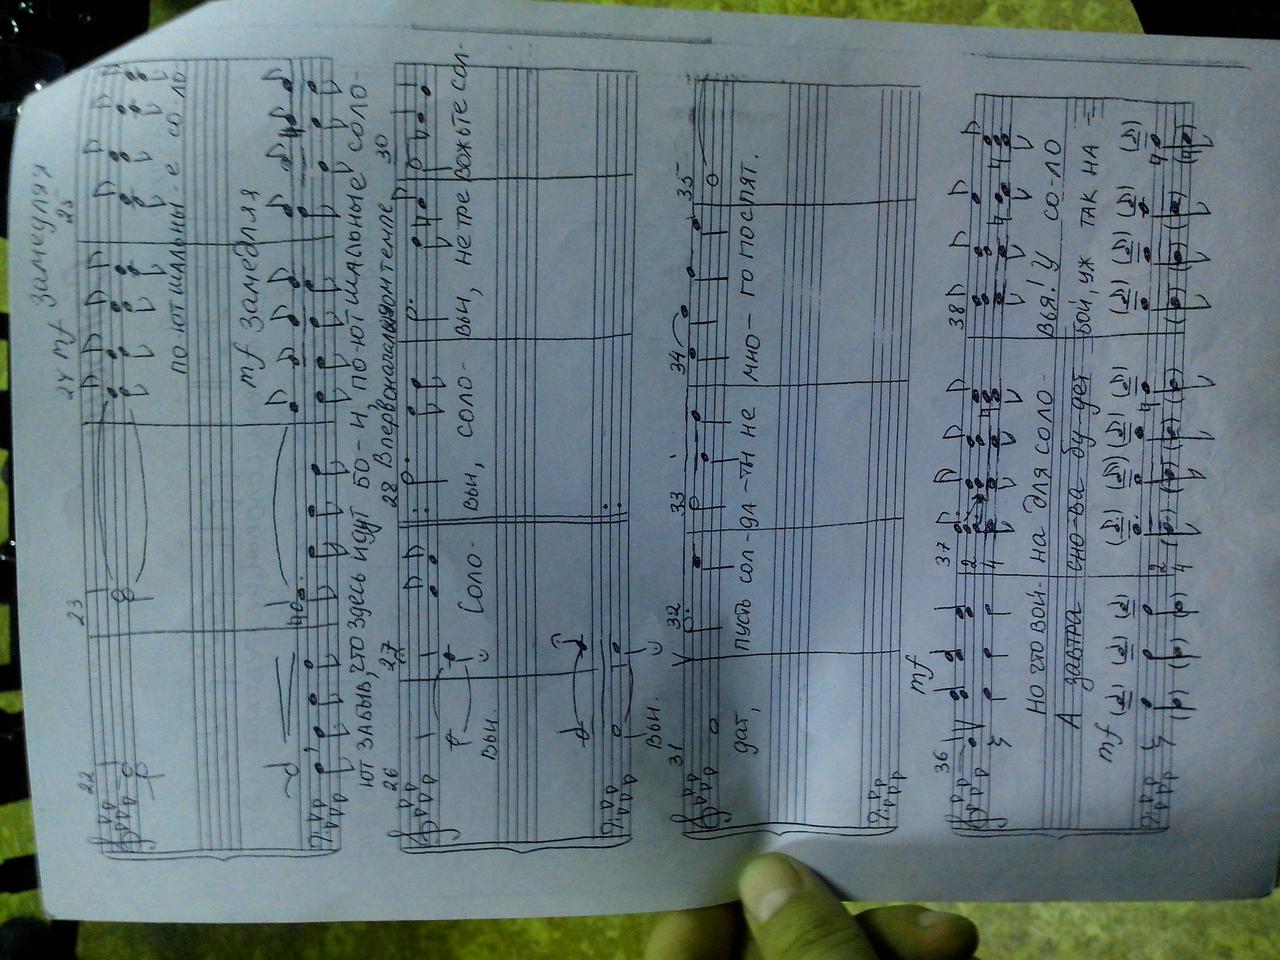 22 23 24 mf замедляя 25
по-ют шальны-е со-ло
mf замедляя
ют забыв, что здесь идут бо-и, по-ют шальные соло-
26 27 28 В первоначальном темпе 30
вьи. Соло- вьи, соло- вьи, не тре вожьте сол-
вьи.
31 32 33 34 35
дат, пусть сол-да-ты не мно- го поспят.
36 mf 37 38
2 4
Но что вой- на для соло- вья! У со-ло
А завтра сно-ва бу-дет бой, уж так на =
mf 2 4